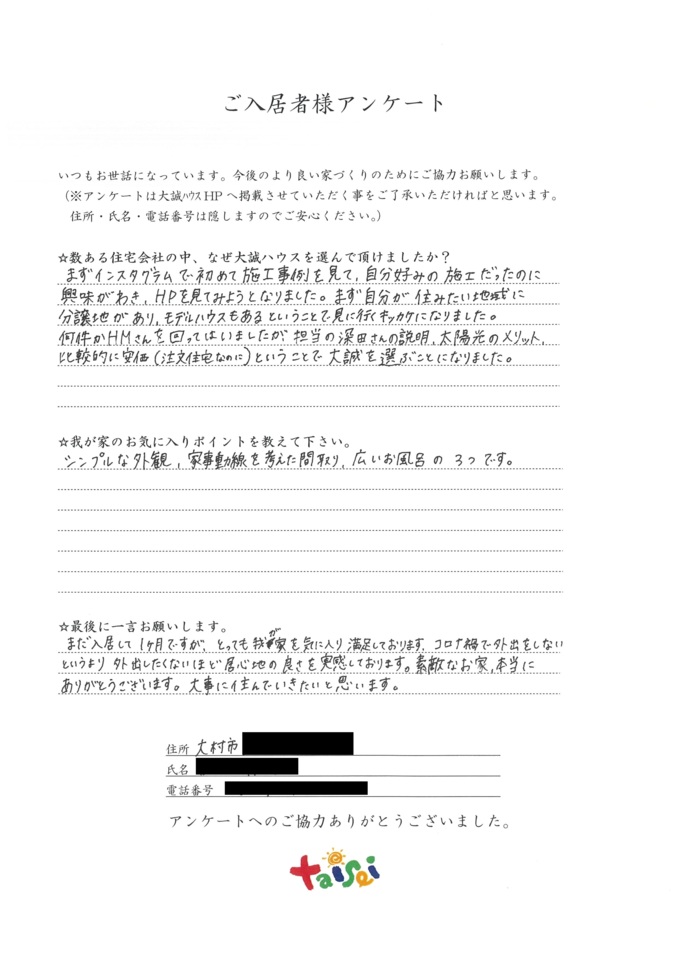 ご入居者様アンケート
いつもお世話になっています。今後のより良い家づくりのためにご協力お願いします。
（※アンケートは大誠ハウスHPへ掲載させていただく事をご了承いただければと思います。
住所・氏名・電話番号は隠しますのでご安心ください。）
☆数ある住宅会社の中、なぜ大誠ハウスを選んで頂けましたか？
まずインスタグラムで初めて施工事例を見て、自分好みの施工だったのに
興味がわき、HPを見てみようとなりました。まず自分が住みたい地域に
分譲地があり、モデルハウスもあるということで見に行くキッカケになりました。
何件かHMさんを回ってはいましたが、担当の深田さんの説明、太陽光のメリット、
比較的に安価（注文住宅なのに）ということで大誠を選ぶことになりました。
☆我が家のお気に入りポイントを教えて下さい。
シンプルな外観、家事動線を考えた間取り、広いお風呂の3つです。
☆最後に一言お願いします。
まだ入居して1ヶ月ですが、とっても我が家を気に入り満足しております。コロナ禍で外出をしない
というより外出したくないほど居心地の良さを実感しております。素敵なお家、本当に
ありがとうございます。大事に住んでいきたいと思います。
住所 大村市
氏名
電話番号
アンケートへのご協力ありがとうございました。
taisei